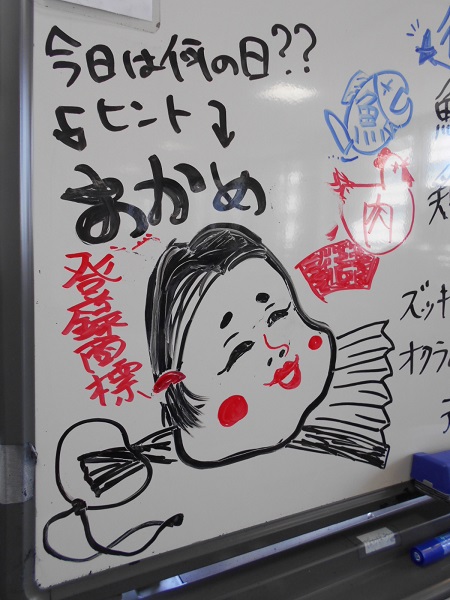 今日は何の日??
ヒント
おかめ
登録商標
魚
肉
特
ズッキ
オクラ